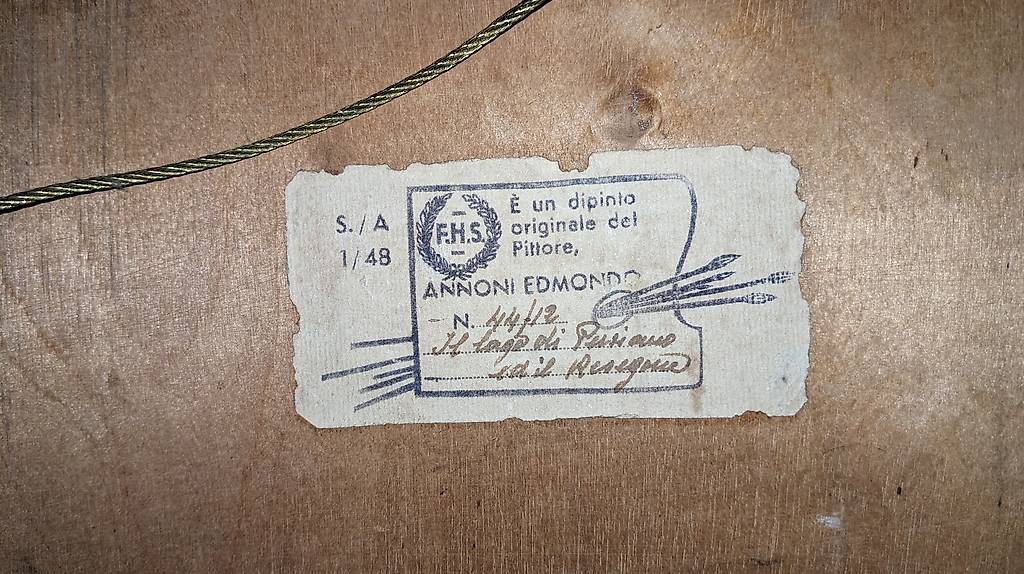 S./A
1/48
F.H.S.
È un dipinto
originale del
Pittore,
ANNONI EDMONDO
N. 44/12
Il lago di Pusiano
ed il Resegone